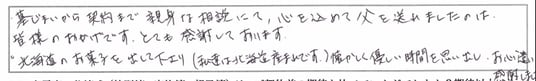 墓じまいから契約まで親身な相談にて、心を込めて父を送れましたのは、
皆様のおかげです。とても感謝しております。
北海道のお菓子を出して下さり(私達は北海道産まれです)懐かしく優しい時間を思い出し、お心遣い
感謝しま